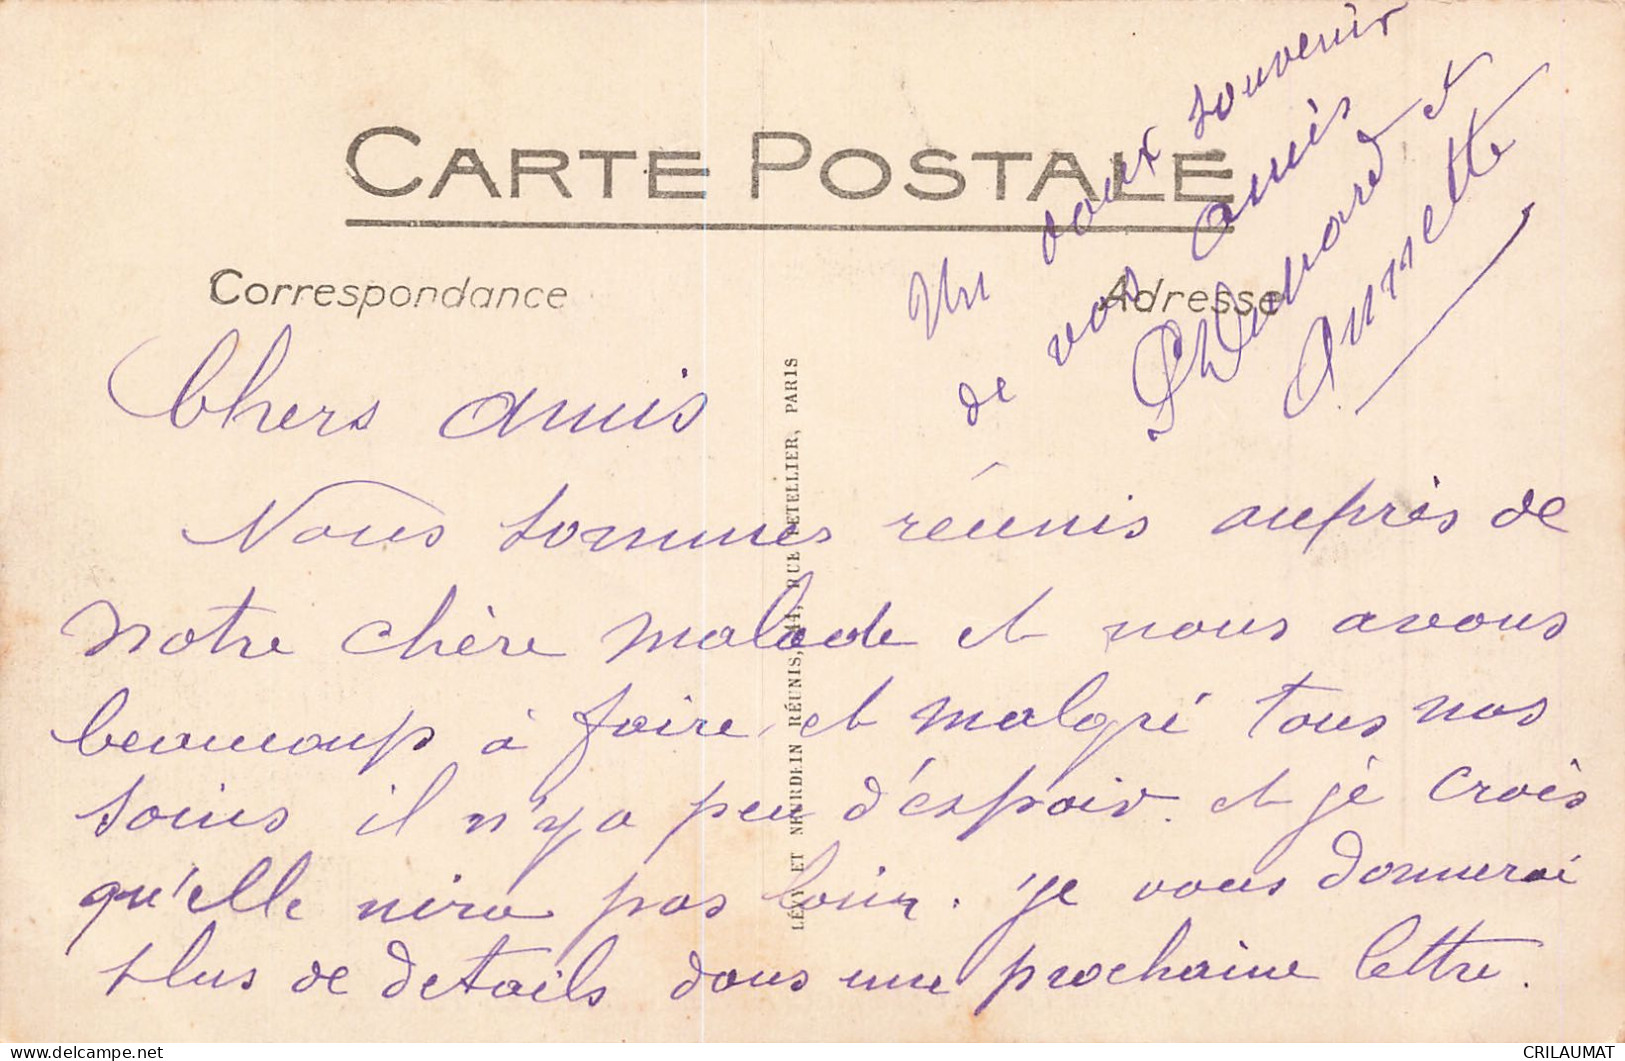 CARTE POSTALE
Correspondance
Adresse
Un doux souvenir
de vos amis
et
Annette
Chers amis
Nous sommes réunis auprès de
notre chère malade et nous avons
beaucoup à faire et malgré tous nos
soins il n'y a peu d'espoir. et je crois
qu'elle nira pas loin. je vous donnerai
plus de details dans une prochaine lettre.
LÉVY ET NEURDEIN RÉUNIS, 44, RUE LETELLIER, PARIS
www.delcampe.net
CRILAUMAT